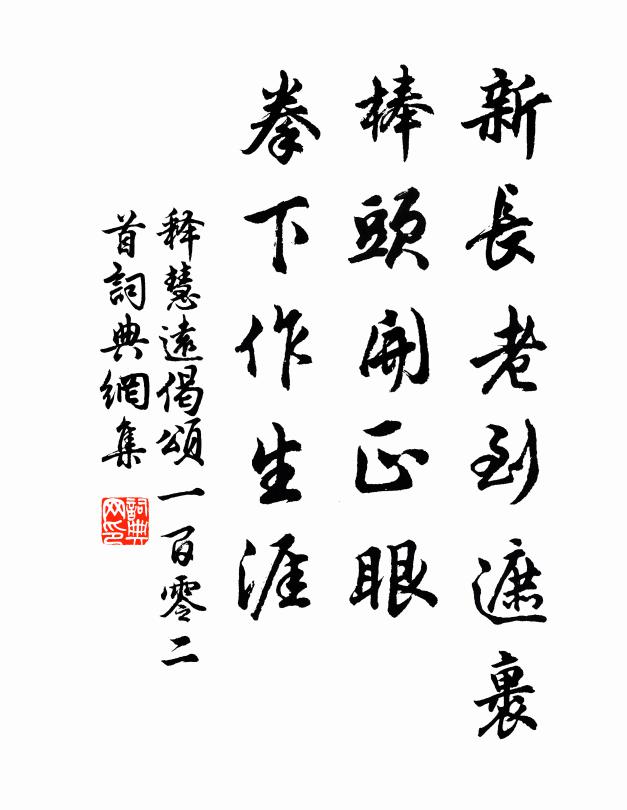 新長老到遮裹
棒頭開正眼
拳下作生涯
释慧遠偈頌一百零二
首詞典網集
詞典网印